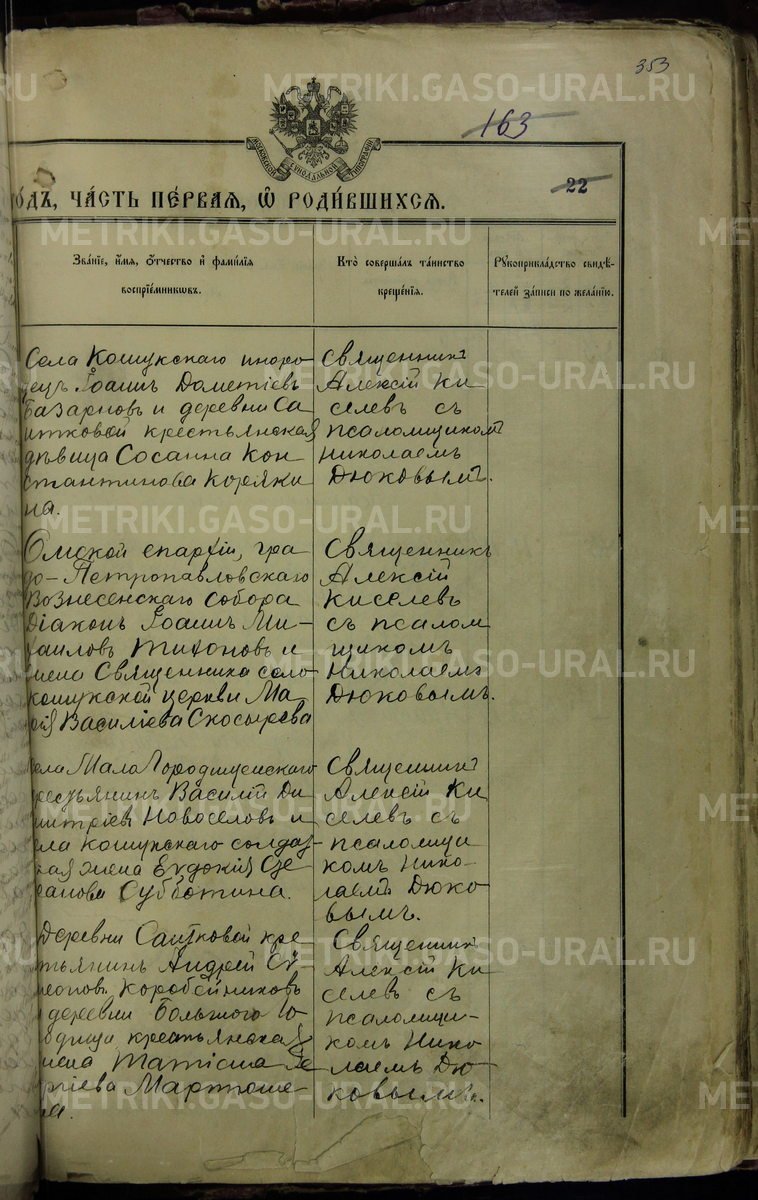 353
163
МОСКОВСКОЙ СѴНОДАЛЬНОЙ ТИПОГРАФІИ
22
ГО́ДЪ, ЧА́СТЬ ПЕ́РВАЯ, Ѽ РОДИ́ВШИХСЯ.
Зва́ніе, и́мя, ѻ҆́тчество и҆ фами́лія
воспріе́мникѡвъ.
Кто̀ соверша́лъ та́инство
креще́нія.
Рꙋкоприкла́дство свидѣ́-
телей за́писи по жела́нію.
Села Кошукскаго иноро-
децъ Іоаннъ Дометіевъ
Базарновъ и деревни Са
итковой крестьянская
дѣвица Сосанна Кон
стантинова Корякина
на.
Священникъ
Алексій Ки
селевъ съ
псаломщикомъ
Николаемъ
Дюковымъ.
Омской епархіи, гра
до-Петропавловскаго
Вознесенскаго собора
Діаконъ Іоаннъ Ми-
хаиловъ Тихоновъ и
жена Священника село
кошукской церкви Ма
рія Василіева Скосырева
Священникъ
Алексій
Киселевъ
съ псалом
щикомъ
Николаемъ
Дюковымъ.
села Мало Городищенскаго
крестьянинъ Василій Ди
митріевъ Новоселовъ и
села кошукскаго солдат-
ская жена Евдокія Сте
фанова Субботина.
Священникъ
Алексій Ки
селевъ съ
псаломщи
комъ Нико-
лаемъ Дюко
вымъ.
Деревни Саитковой кре
стьянинъ Андрей Си-
меоновъ Коробейниковъ
деревни Большого Го
родища крестьянская
жена Татіана Ге
ргіева Мартюше
ва.
Священникъ
Алексій Ки
селевъ съ
псаломщи-
комъ Нико
лаемъ Дю
ковымъ.
METRIKI.GASO-URAL.RU
METRIKI.GASO-URAL.RU
METRIKI.GASO-URAL.RU
METRIKI.GASO-URAL.RU
METRIKI.GASO-URAL.RU
METRIKI.GASO-URAL.RU
METRIKI.GASO-URAL.RU
METRIKI.GASO-URAL.RU